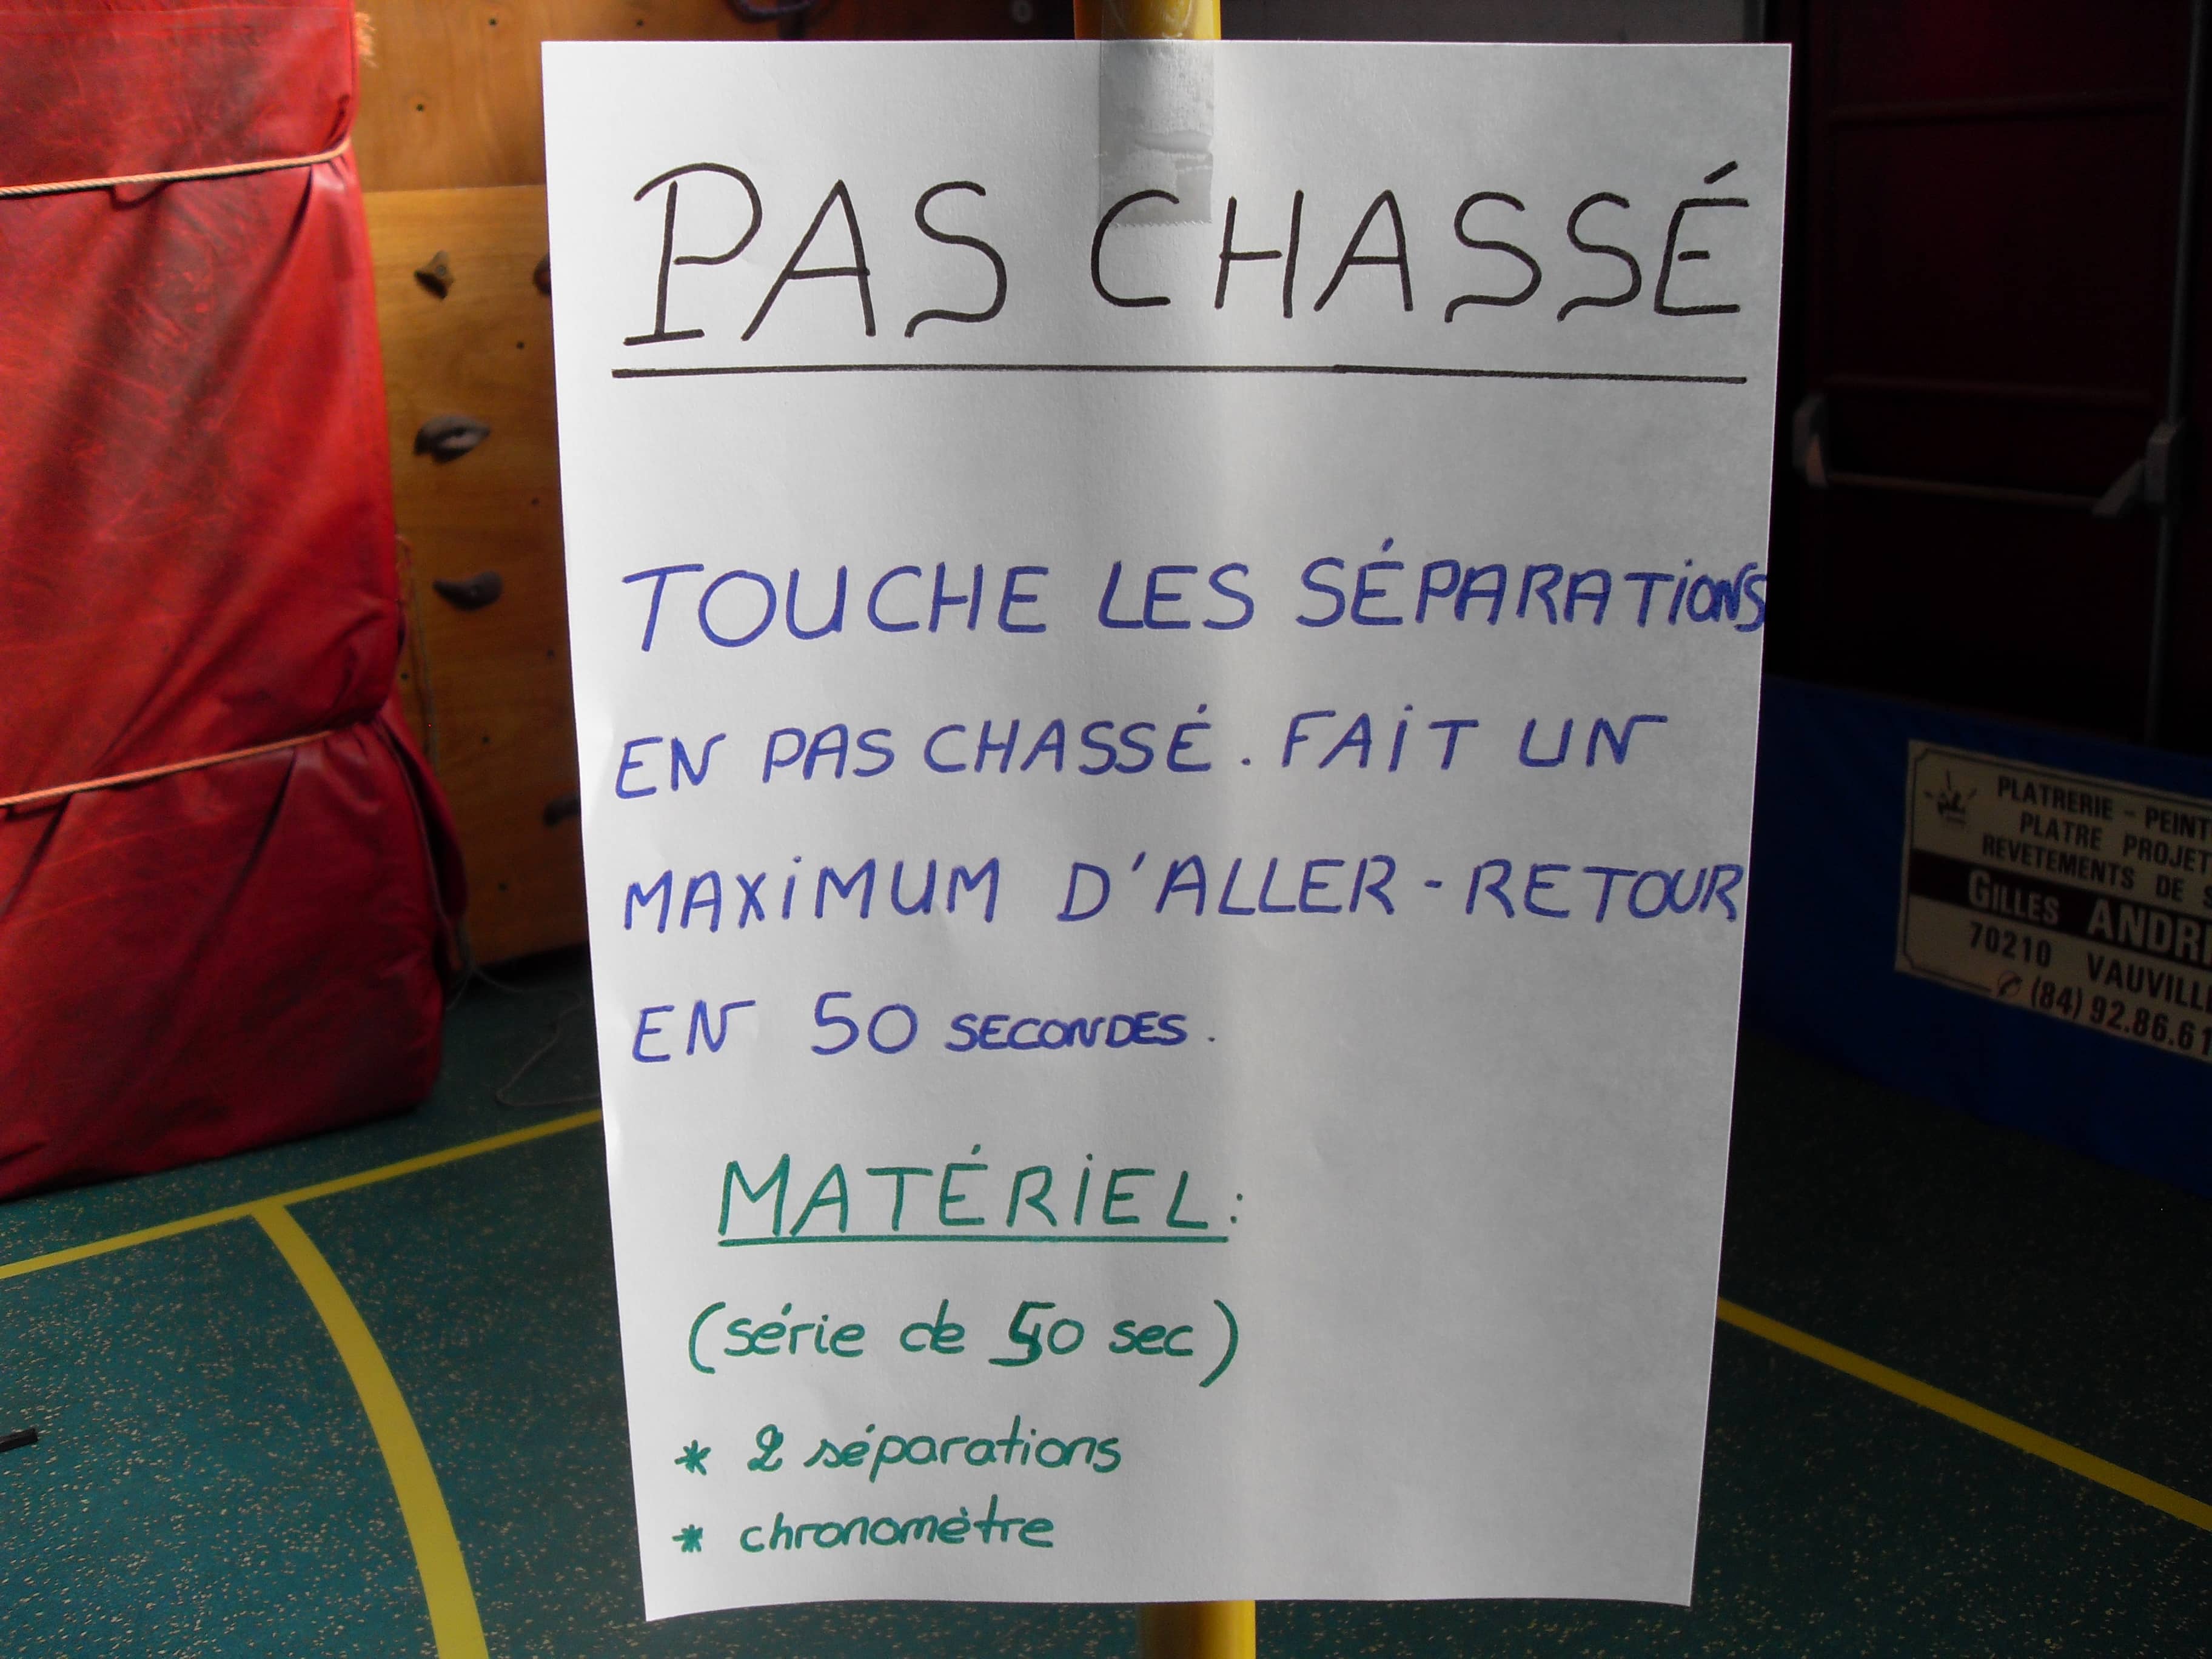 PAS CHASSÉ
TOUCHE LES SÉPARATiONS
EN PAS CHASSÉ. FAiT UN
MAXiMUM D'ALLER-RETOUR
EN 50 SECONDES.
MATÉRiEL:
(série de 50 sec)
* 2 séparations
* chronomètre
PLATRERIE - PEINT
PLATRE PROJET
REVETEMENTS DE S
GILLES ANDRI
70210 VAUVILL
(84) 92.86.61